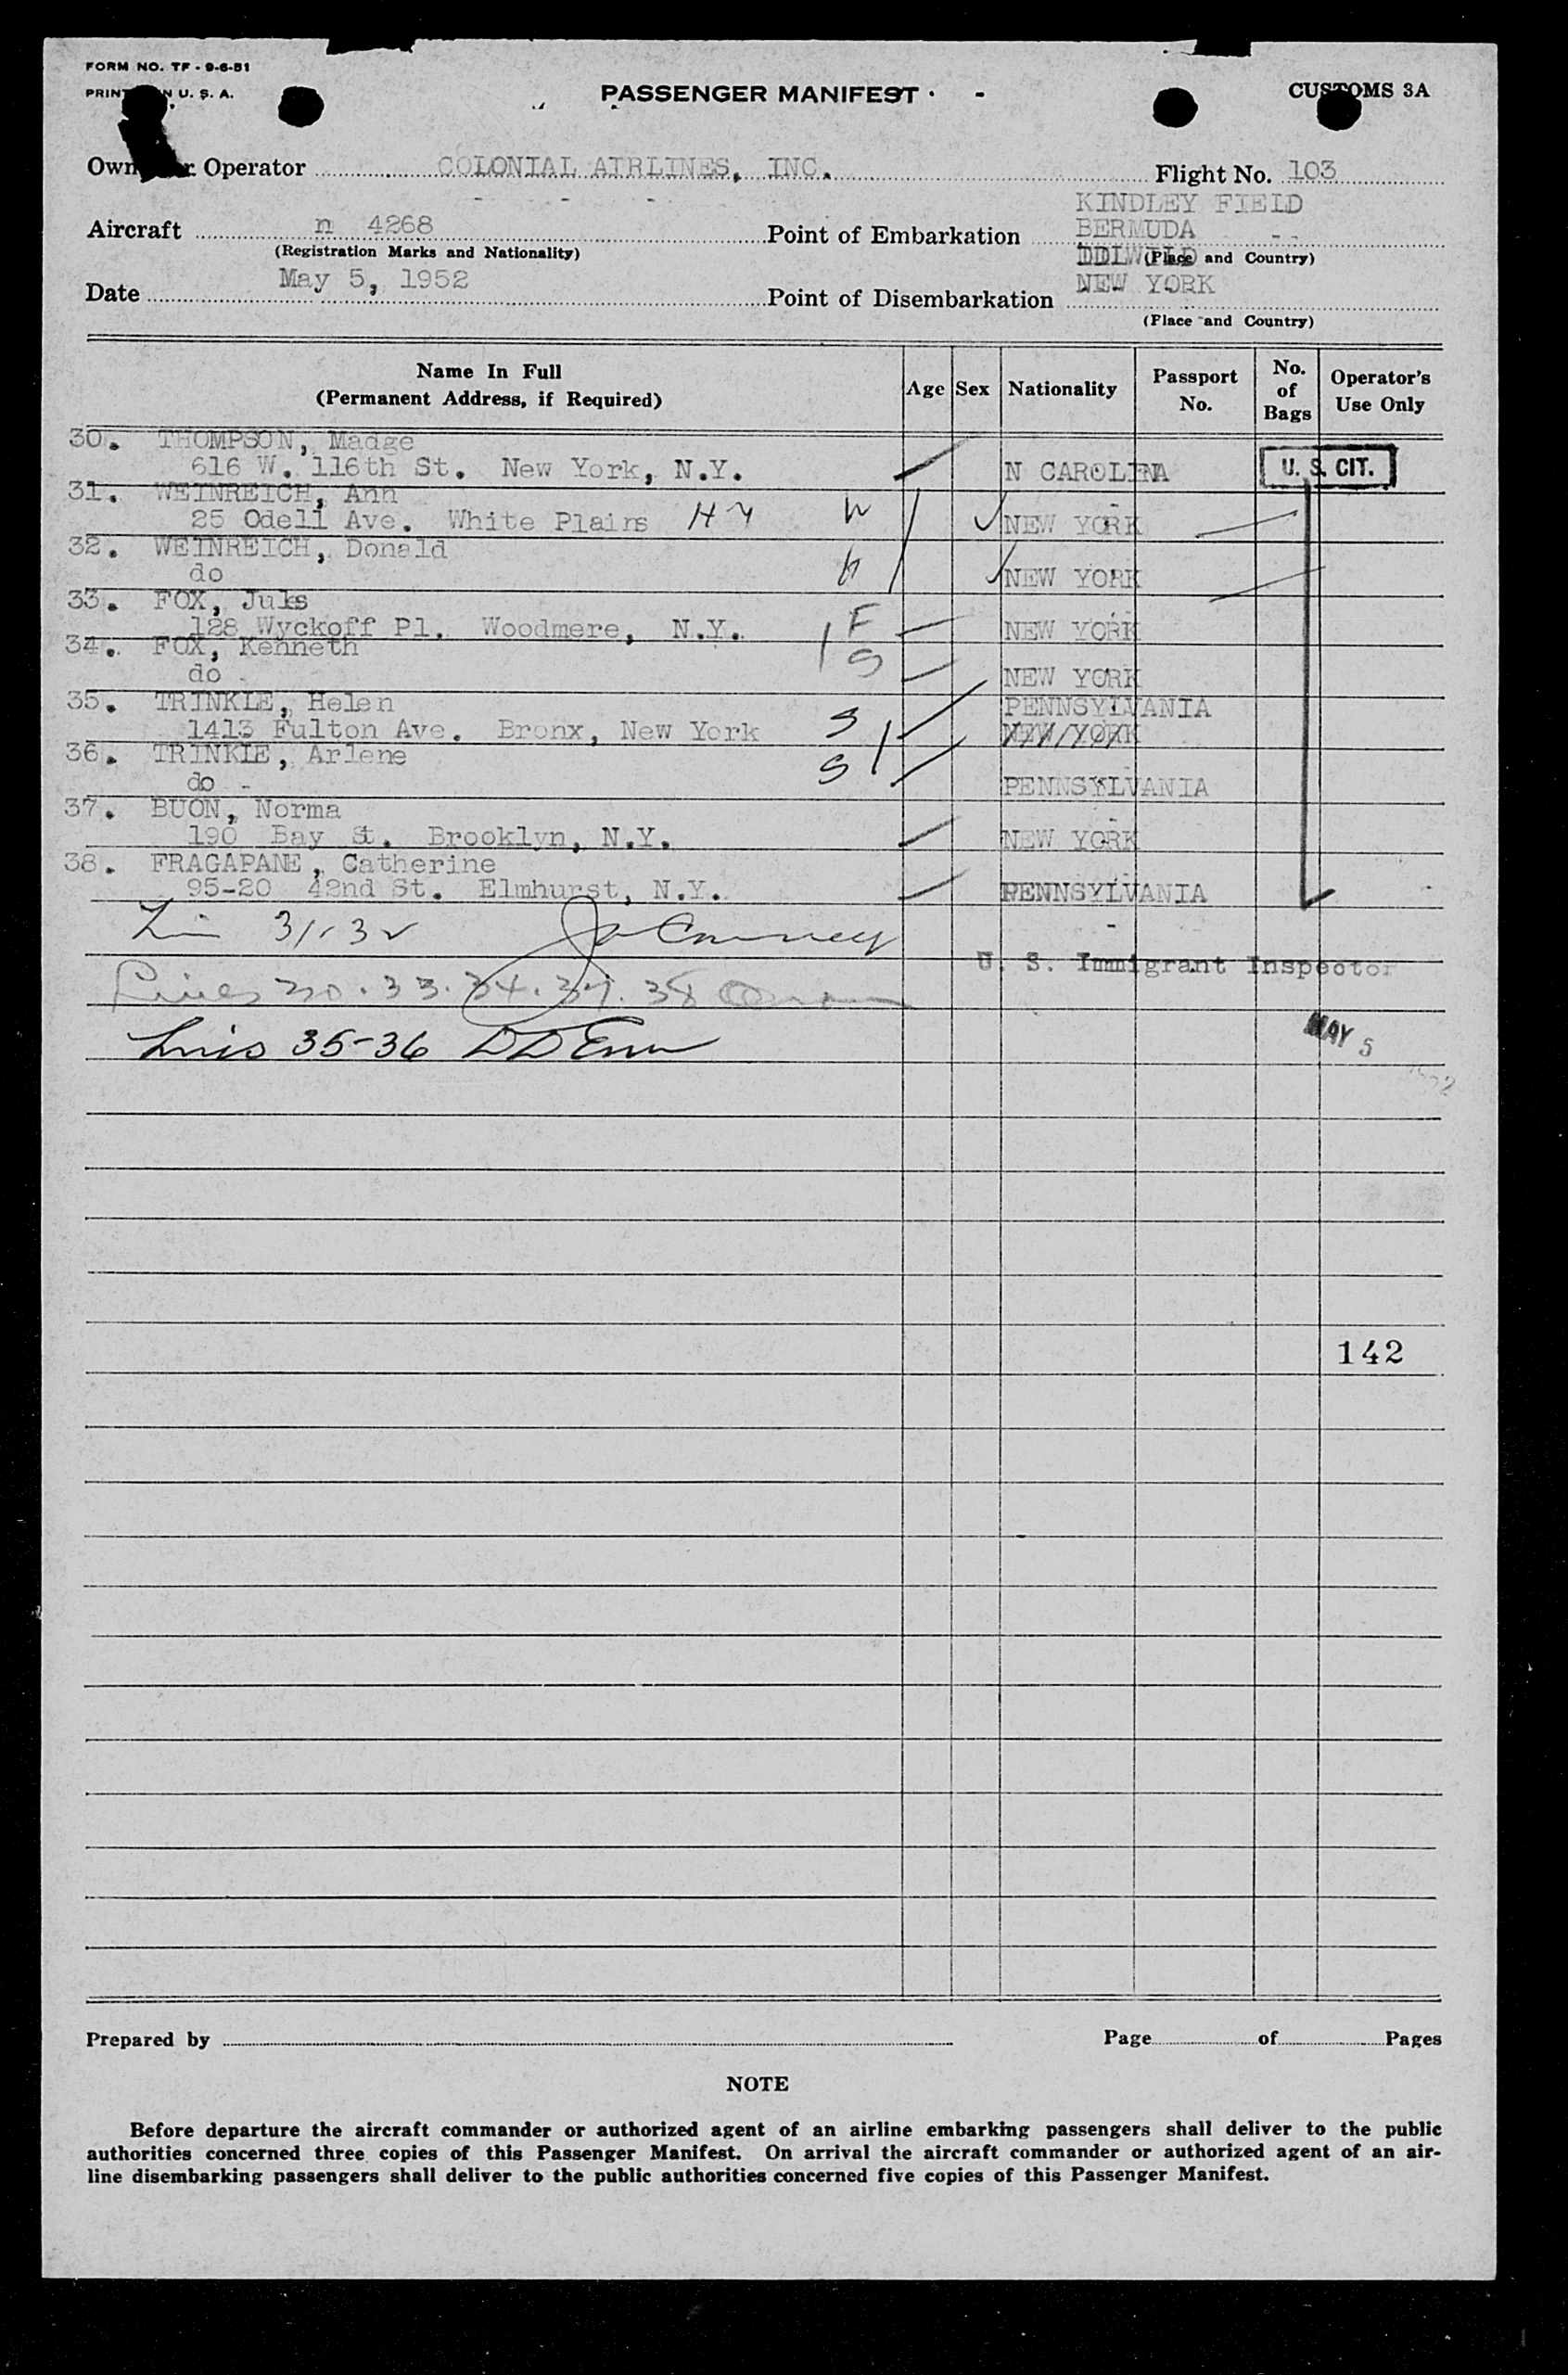 FORM NO. TF - 9-6-51
PRINTED IN U. S. A.
PASSENGER MANIFEST
CUSTOMS 3A
Owner or Operator COLONIAL AIRLINES, INC.
Flight No. 103
KINDLEY FIELD
Aircraft n 4268
Point of Embarkation BERMUDA
(Registration Marks and Nationality)
(Place and Country)
Date May 5, 1952
Point of Disembarkation NEW YORK
(Place and Country)
Name In Full
(Permanent Address, if Required)
Age
Sex
Nationality
Passport No.
No. of Bags
Operator's Use Only
30. THOMPSON, Madge
616 W. 116th St. New York, N.Y. N CAROLINA U. S. CIT.
31. WEINREICH, Ann
25 Odell Ave. White Plains NY W NEW YORK
32. WEINREICH, Donald
do h NEW YORK
33. FOX, Juls
128 Wyckoff Pl. Woodmere, N.Y. F NEW YORK
34. FOX, Kenneth
do S NEW YORK
35. TRINKLE, Helen PENNSYLVANIA
1413 Fulton Ave. Bronx, New York S NEW YORK
36. TRINKLE, Arlene
do S PENNSYLVANIA
37. BUON, Norma
190 Bay St. Brooklyn, N.Y. NEW YORK
38. FRAGAPANE, Catherine
95-20 42nd St. Elmhurst, N.Y. PENNSYLVANIA
31-32
U. S. Immigrant Inspector
Lines 30. 33. 34. 37. 38
Lines 35-36
MAY 5
142
Prepared by
Page of Pages
NOTE
Before departure the aircraft commander or authorized agent of an airline embarking passengers shall deliver to the public
authorities concerned three copies of this Passenger Manifest. On arrival the aircraft commander or authorized agent of an air-
line disembarking passengers shall deliver to the public authorities concerned five copies of this Passenger Manifest.